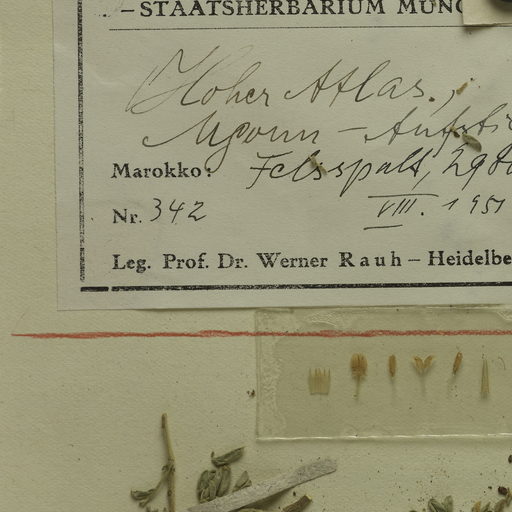 – STAATSHERBARIUM MÜNC
Hoher Atlas,
Mgoun – Aufsti
Marokko: Felsspalt, 29
Nr. 342 VIII. 1951
Leg. Prof. Dr. Werner Rauh – Heidelbe